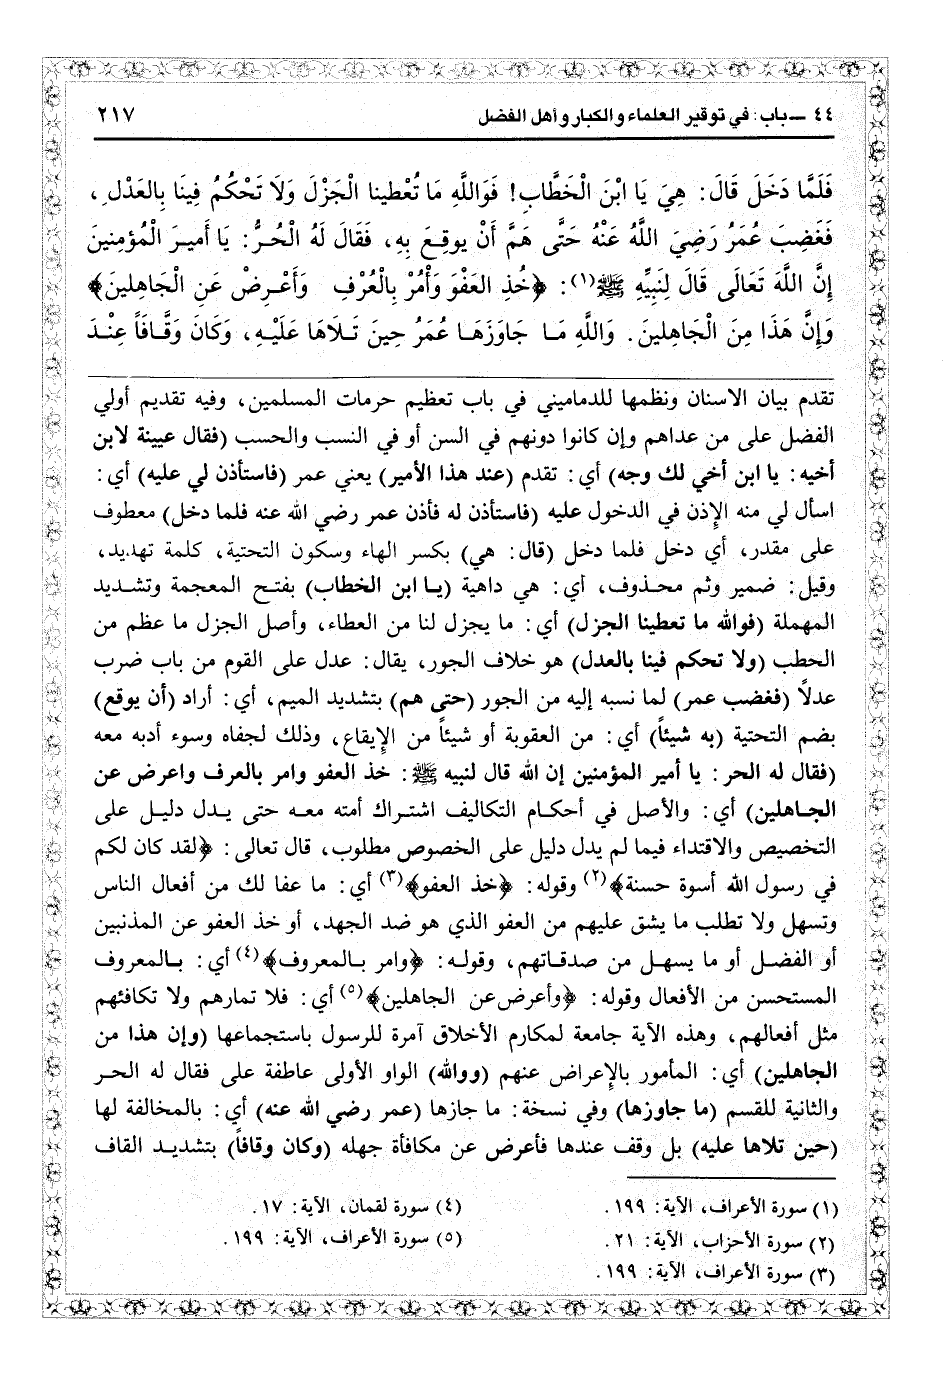 ٤٤ ــ باب: في توقير العلماء والكبار وأهل الفضل ٢١٧
فَلَمَّا دَخَلَ قَالَ: هِيَ يَا ابْنَ الْخَطَّابِ! فَوَاللَّهِ مَا تُعْطِينا الْجَزْلَ وَلَا تَحْكُمُ فِينَا بِالعَدْلِ،
فَغَضِبَ عُمَرُ رَضِيَ اللَّهُ عَنْهُ حَتَّى هَمَّ أَنْ يوقِعَ بِهِ، فَقَالَ لَهُ الْحُرُّ: يَا أَمِيرَ الْمُؤْمِنِينَ
إِنَّ اللَّهَ تَعَالَى قَالَ لِنَبِيِّهِ ﷺ(١): ﴿خُذِ العَفْوَ وَأْمُرْ بِالْعُرْفِ وَأَعْرِضْ عَنِ الْجَاهِلِينَ﴾
وَإِنَّ هَذَا مِنَ الْجَاهِلِينَ. وَاللَّهِ مَا جَاوَزَهَا عُمَرُ حِينَ تَلَاهَا عَلَيْهِ، وَكَانَ وَقَّافَاً عِنْدَ
تقدم بيان الاسنان ونظمها للدماميني في باب تعظيم حرمات المسلمين، وفيه تقديم أولي
الفضل على من عداهم وإن كانوا دونهم في السن أو في النسب والحسب (فقال عيينة لابن
أخيه: يا ابن أخي لك وجه) أي: تقدم (عند هذا الأمير) يعني عمر (فاستأذن لي عليه) أي:
اسأل لي منه الإِذن في الدخول عليه (فاستأذن له فأذن عمر رضي الله عنه فلما دخل) معطوف
على مقدر، أي دخل فلما دخل (قال: هي) بكسر الهاء وسكون التحتية، كلمة تهديد،
وقيل: ضمير وثم محذوف، أي: هي داهية (يا ابن الخطاب) بفتح المعجمة وتشديد
المهملة (فوالله ما تعطينا الجزل) أي: ما يجزل لنا من العطاء، وأصل الجزل ما عظم من
الحطب (ولا تحكم فينا بالعدل) هو خلاف الجور، يقال: عدل على القوم من باب ضرب
عدلاً (فغضب عمر) لما نسبه إليه من الجور (حتى هم) بتشديد الميم، أي: أراد (أن يوقع)
بضم التحتية (به شيئاً) أي: من العقوبة أو شيئاً من الإِيقاع، وذلك لجفاه وسوء أدبه معه
(فقال له الحر: يا أمير المؤمنين إن الله قال لنبيه ﷺ: خذ العفو وامر بالعرف واعرض عن
الجاهلين) أي: والأصل في أحكام التكاليف اشتراك أمته معه حتى يدل دليل على
التخصيص والاقتداء فيما لم يدل دليل على الخصوص مطلوب، قال تعالى: ﴿لقد كان لكم
في رسول الله أسوة حسنة﴾(٢) وقوله: ﴿خذ العفو﴾(٣) أي: ما عفا لك من أفعال الناس
وتسهل ولا تطلب ما يشق عليهم من العفو الذي هو ضد الجهد، أو خذ العفو عن المذنبين
أو الفضل أو ما يسهل من صدقاتهم، وقوله: ﴿وامر بالمعروف﴾(٤) أي: بالمعروف
المستحسن من الأفعال وقوله: ﴿وأعرض عن الجاهلين﴾(٥) أي: فلا تمارهم ولا تكافئهم
مثل أفعالهم، وهذه الآية جامعة لمكارم الأخلاق آمرة للرسول باستجماعها (وإن هذا من
الجاهلين) أي: المأمور بالإِعراض عنهم (ووالله) الواو الأولى عاطفة على فقال له الحر
والثانية للقسم (ما جاوزها) وفي نسخة: ما جازها (عمر رضي الله عنه) أي: بالمخالفة لها
(حين تلاها عليه) بل وقف عندها فأعرض عن مكافأة جهله (وكان وقافاً) بتشديد القاف
(١) سورة الأعراف، الآية: ١٩٩.
(٢) سورة الأحزاب، الآية: ٢١.
(٣) سورة الأعراف، الآية: ١٩٩.
(٤) سورة لقمان، الآية: ١٧.
(٥) سورة الأعراف، الآية: ١٩٩.